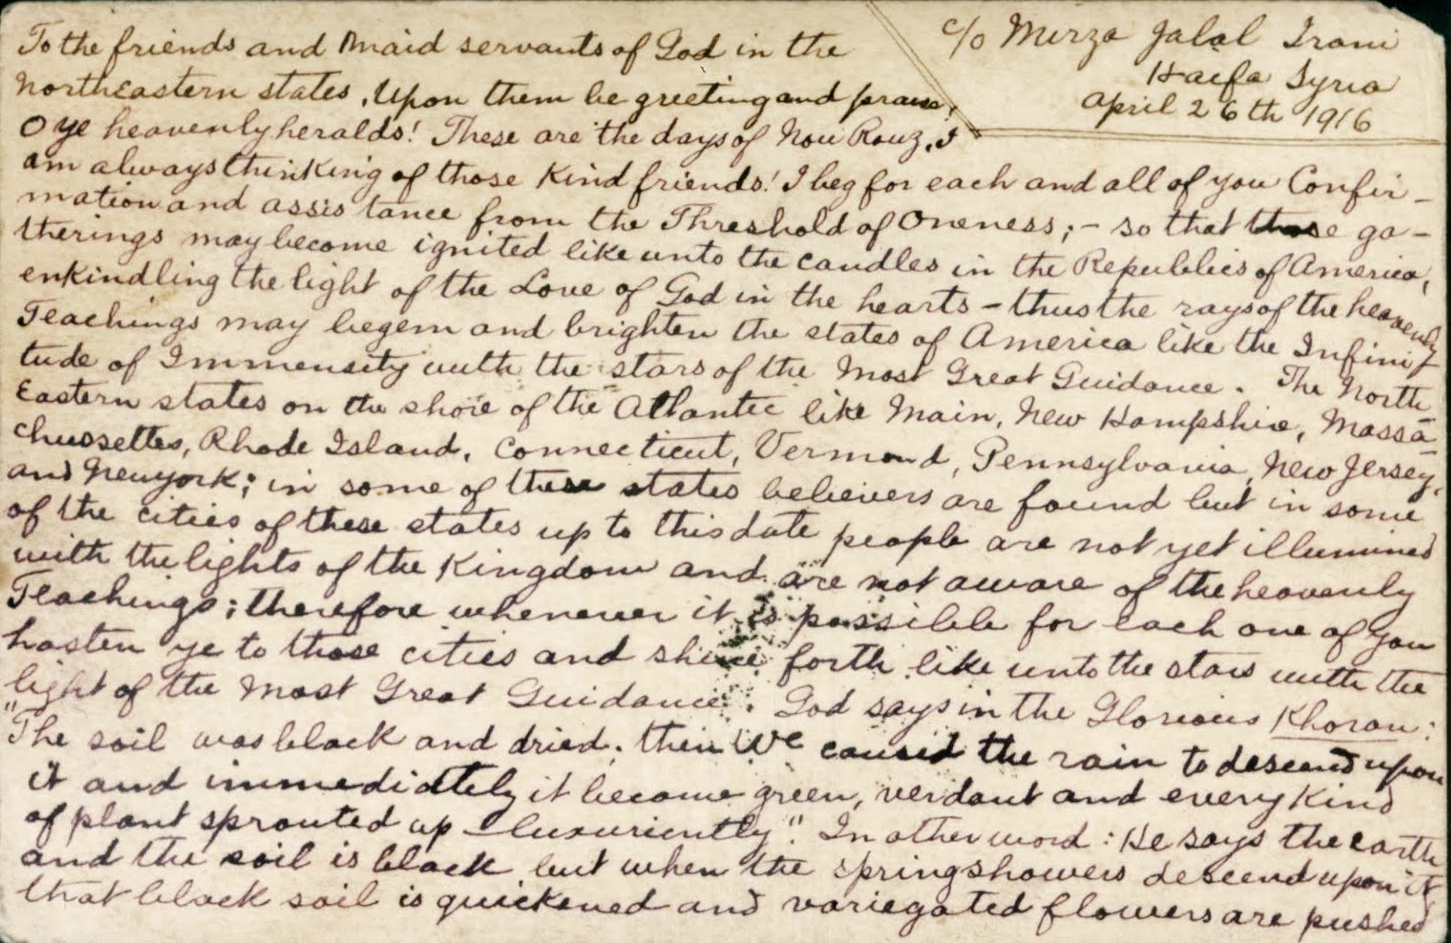 c/o Mirza Jalal Irani
Haifa Syria
April 26th 1916
To the friends and maid servants of God in the
Northeastern states, Upon them be greeting and praise,
O ye heavenly heralds! These are the days of Nou Rouz, I
am always thinking of those Kind friends! I beg for each and all of you Confir-
mation and assistance from the Threshold of Oneness;- so that those ga-
therings may become ignited like unto the candles in the Republics of America,
enkindling the light of the Love of God in the hearts - thus the rays of the heavenly
Teachings may begem and brighten the states of America like the Infini-
tude of Immensity with the stars of the Most Great Guidance. The North
Eastern states on the shore of the Atlantic like Main, New Hampshire, Massa-
chussettes, Rhode Island, Connecticut, Vermond, Pennsylvania, New Jersey,
and Newyork; in some of these states believers are found but in some
of the cities of these states up to this date people are not yet illumined
with the lights of the Kingdom and are not aware of the heavenly
Teachings; therefore whenever it is possible for each one of you
hasten ye to those cities and shine forth like unto the stars with the
light of the Most Great Guidance. God says in the Glorious Khoran:
"The soil was black and dried. then We caused the rain to descend upon
it and immediatly it become green, verdant and every Kind
of plant sprouted up luxuriently." In other word: He says the earth
and the soil is black but when the spring showers descend upon it
that black soil is quickened and variegated flowers are pushed